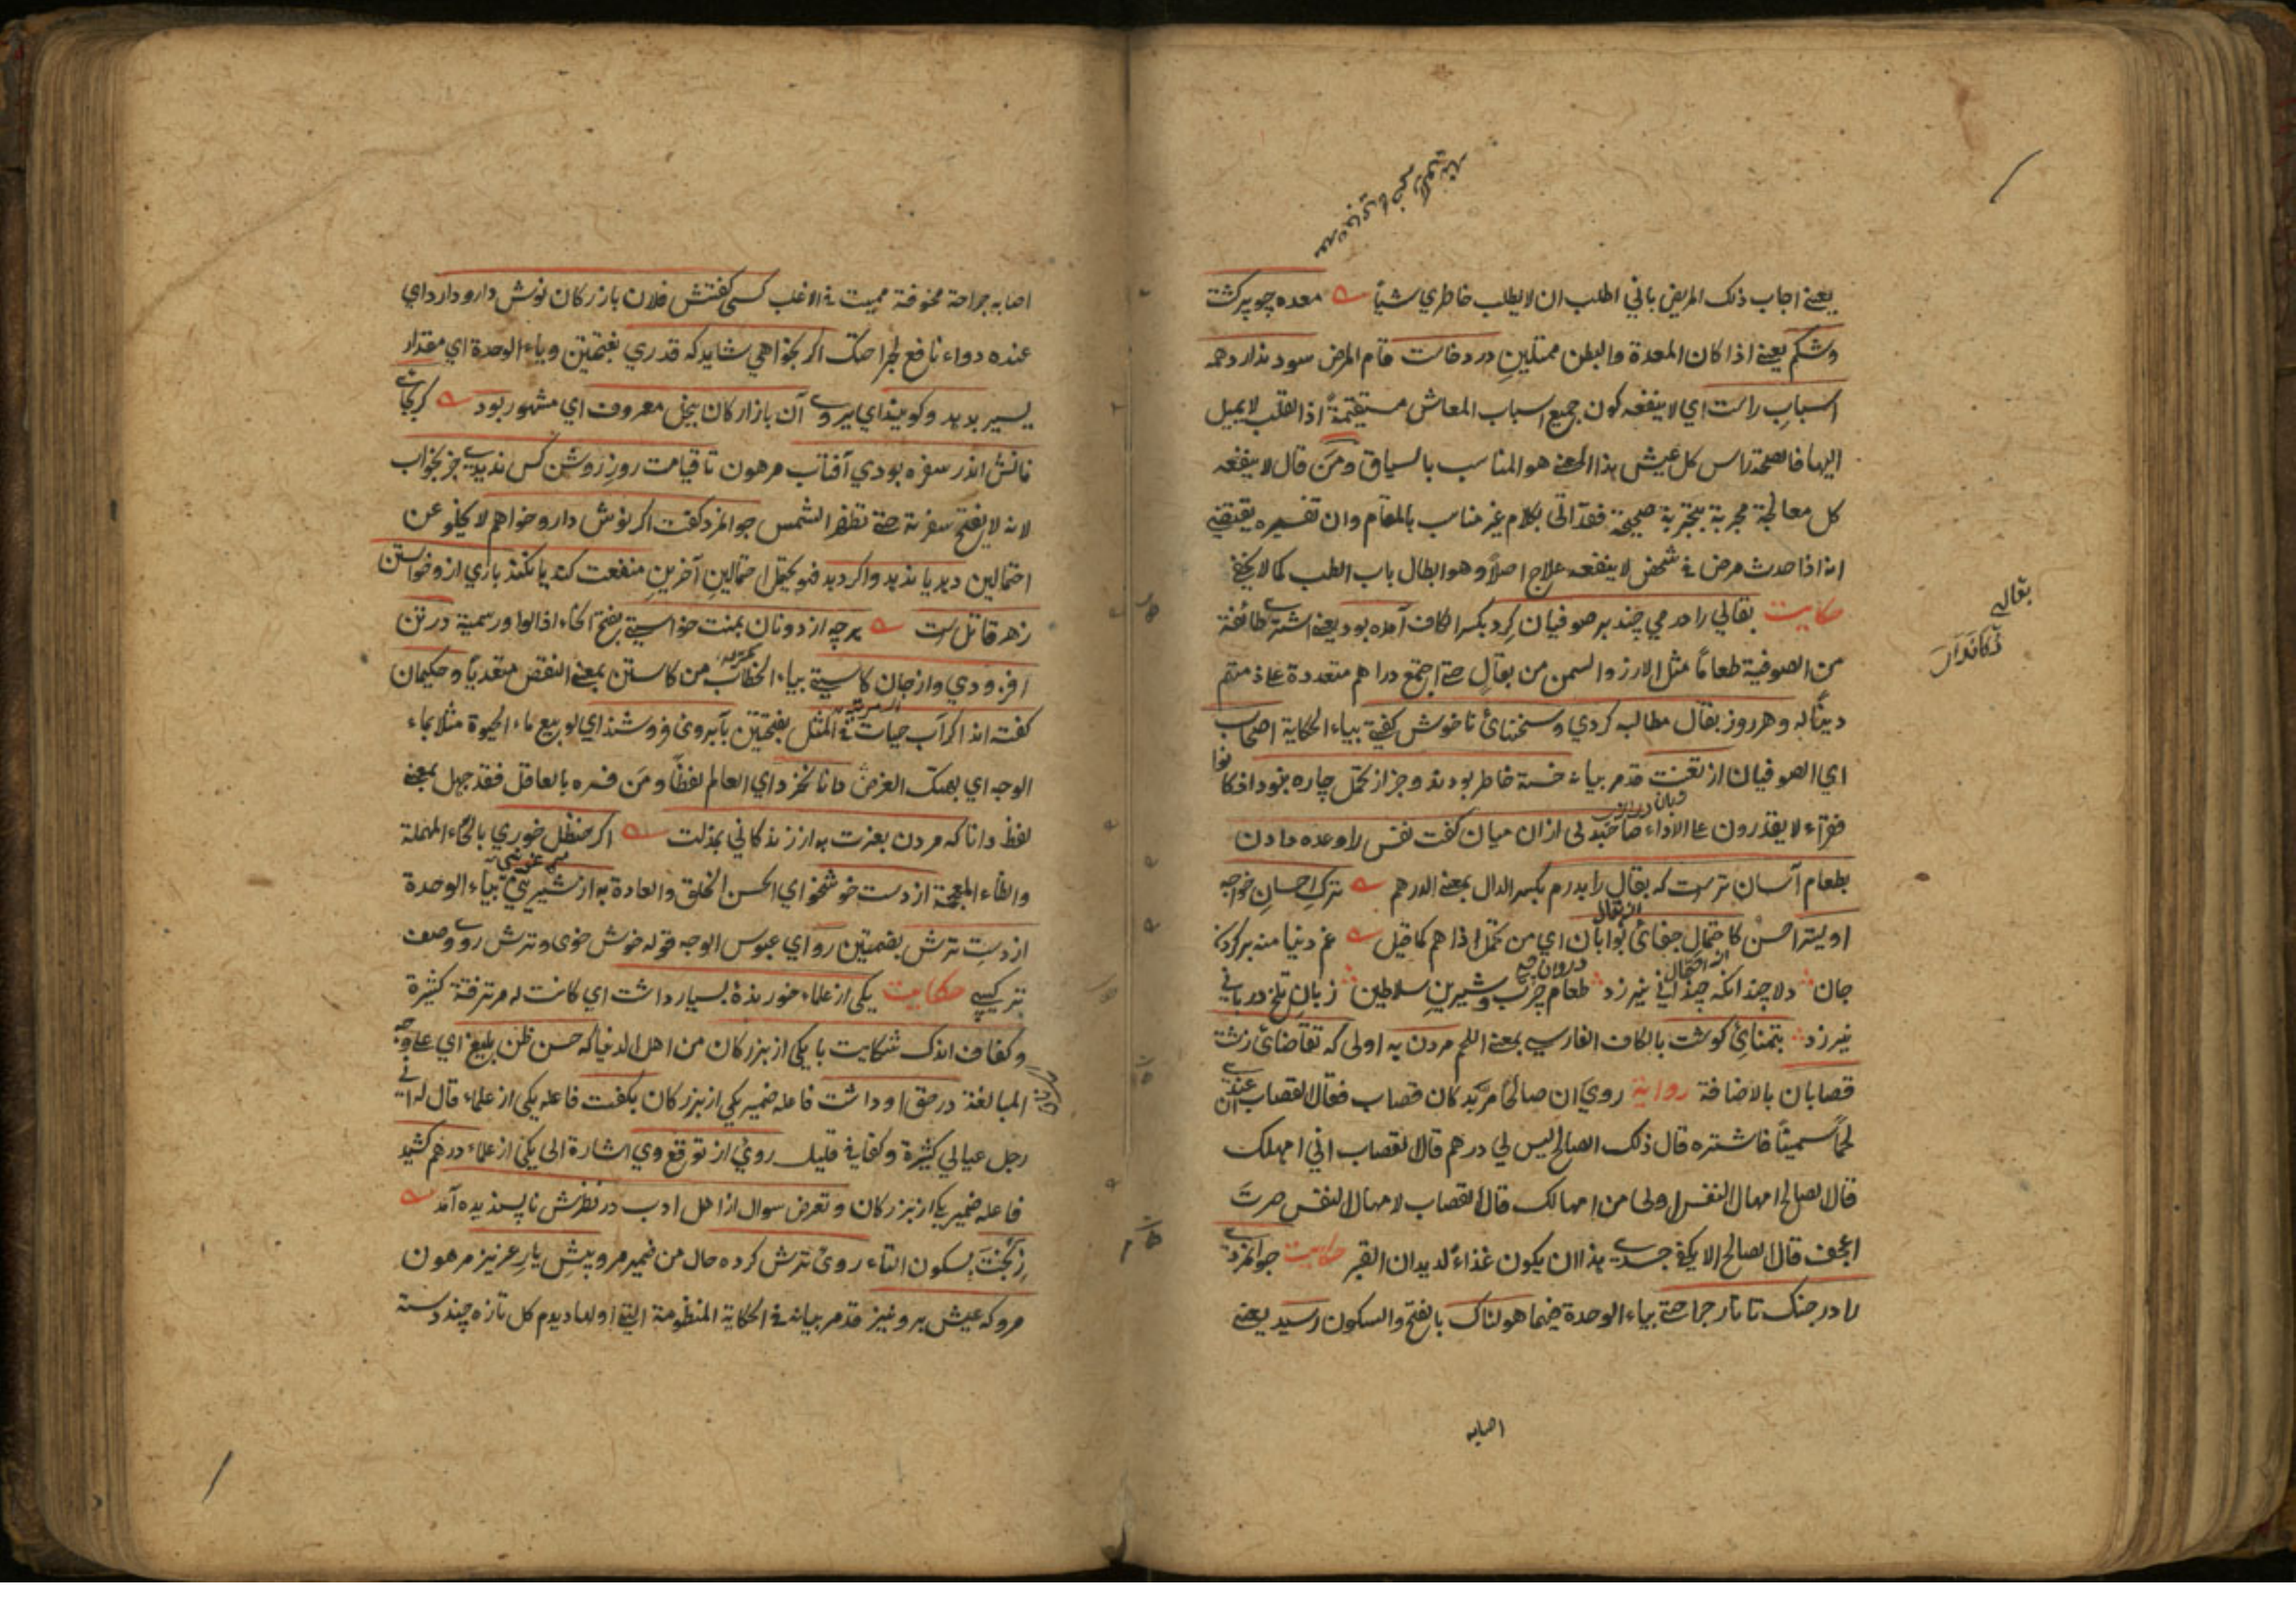 يعني اجاب ذلك المريض باني اطلب ان لا يطلب خاطري شيأ معده چو پر كشت
وشكم يعني اذا كان المعدة والبطن ممتلين درد خاست قام المرض سود ندارد همه
اسباب راست اي لا ينفعه كون جميع اسباب المعاش مستقيمة اذ القلب لا يميل
اليها فالصحة راس كل عيش هذا المعنى هو المناسب بالسياق ومن قال لا ينفعه
كل معالجة مجربة بتجربة صحيحة فقد اتى بكلام غير مناسب بالمقام وان تفسيره يقتضي
انه اذا حدث مرض في شخص لا ينفعه علاج اصلا وهو ابطال باب الطب كما لا يخفى
حكايت بقالي را درمي چند بر صوفيان كرد بكسر الكاف آمده بود يعني اشترى طائفة
من الصوفية طعاما مثل الارز والسمن من بقال حتى اجتمع دراهم متعددة على ذمتهم
دينا له وهر روز بقال مطالبه كردي وسخنهائ ناخوش كفتي بياء الحكاية اصحاب
اي الصوفيان از تعنت قد مر بيانه خسته خاطر بودند وجز از تحمل چاره نبود اذ كانوا
فقراء لا يقدرون على الاداء صاحبدلى از ان ميان كفت نفس را وعده دادن
بطعام آسان ترست كه بقال را بدرم بكسر الدال بمعنى الدرهم ترك احسان خواجه
اوليتر احسن كاحتمال جفائ بوابان اي من تحمل اذاهم كما قيل غم دنيا منه بر كردن
جان دلا چندانكه چنداني نيرزد طعام چرب وشيرين سلاطين زبان تلخ درباني
نيرزد بتمنائ كوشت بالكاف الفارسي بمعنى اللحم مردن به اولى كه تقاضائ زشت
قصابان بالاضافة رواية روي ان صالحا مر بدكان قصاب فقال القصاب عندي
لحما سمينا فاشتره قال ذلك الصالح ليس لي درهم قال القصاب اني امهلك
قال الصالح امهال النفس اولى من امهالك قال القصاب لامهال النفس صرت
اعجف قال الصالح الا يكفي جسدي هذا ان يكون غذاء لديدان القبر حكايت جوانمردي
را در جنك تاتار جراحتي بياء الوحدة فيهما هولناك بالفتح والسكون رسيد يعني
اصابه
بقالي
دكاندار
اصابه جراحة مخوفة مميت في الاغلب كسى كفتش فلان بازركان نوش دارو دارد اي
عنده دواء نافع لجراحتك اكر بخواهي شايد كه قدري بفتحتين وياء الوحدة اي مقدار
يسير بدهد وكويند اي يروى آن بازاركان ببخل معروف اي مشهور بود كر بجاي
نانش اندر سفره بودي آفتاب مرهون تا قيامت روز روشن كس نديدي جز بخواب
لانه لا يفتح سفرته حتى تظهر الشمس جوانمرد كفت اكر نوش دارو خواهم لا يخلو عن
احتمالين دهد يا ندهد واكر دهد فهو يحتمل احتمالين آخرين منفعت كند يا نكند باري ازو خواستن
زهر قاتل است هرچه از دونان بمنت خواستي بفتح الخاء اذ الواو رسمية در تن
افزودي واز جان كاستي بياء الخطاب من كاستن بمعنى النقص متعديا وحكيمان
كفته اند اكر آب حيات في المثل بفتحتين بآبروى فروشند اي لو بيع ماء الحيوة مثلا بماء
الوجه اي بهتك العرض دانا نخرد اي العالم لفظا ومن فسره بالعاقل فقد جهل بمعنى
لفظ دانا كه مردن بعزت به از زندكاني بمذلت اكر حنظل خوري بالحاء المهملة
والظاء المعجمة از دست خوشخو اي الحسن الخلق والعادة به از شيريني بياء الوحدة
از دست ترش بضمتين رو اي عبوس الوجه قوله خوش خوى وترش روى وصف
تركيبي حكايت يكى از علماء خورندۀ بسيار داشت اي كانت له مرتزقة كثيرة
وكفاف اندك شكايت با يكى از بزركان من اهل الدنيا كه حسن ظن بليغ اي على وجه
المبالغة در حق او داشت فاعله ضمير يكى از بزركان بكفت فاعله يكى از علماء قال له اني
رجل عيالي كثيرة وكفافي قليل روى از توقع وي اشارة الى يكى از علماء درهم كشيد
فاعله ضمير يكى از بزركان وتعرض سوال از اهل ادب در نظرش ناپسنديده آمد
ز بخت بسكون التاء روى ترش كرده حال من ضمير مرو پيش يار عزيز مرهون
مرو كه عيش برو نيز قد مر بيانه في الحكاية المنظومة التي اولها ديدم كل تازه چند دسته